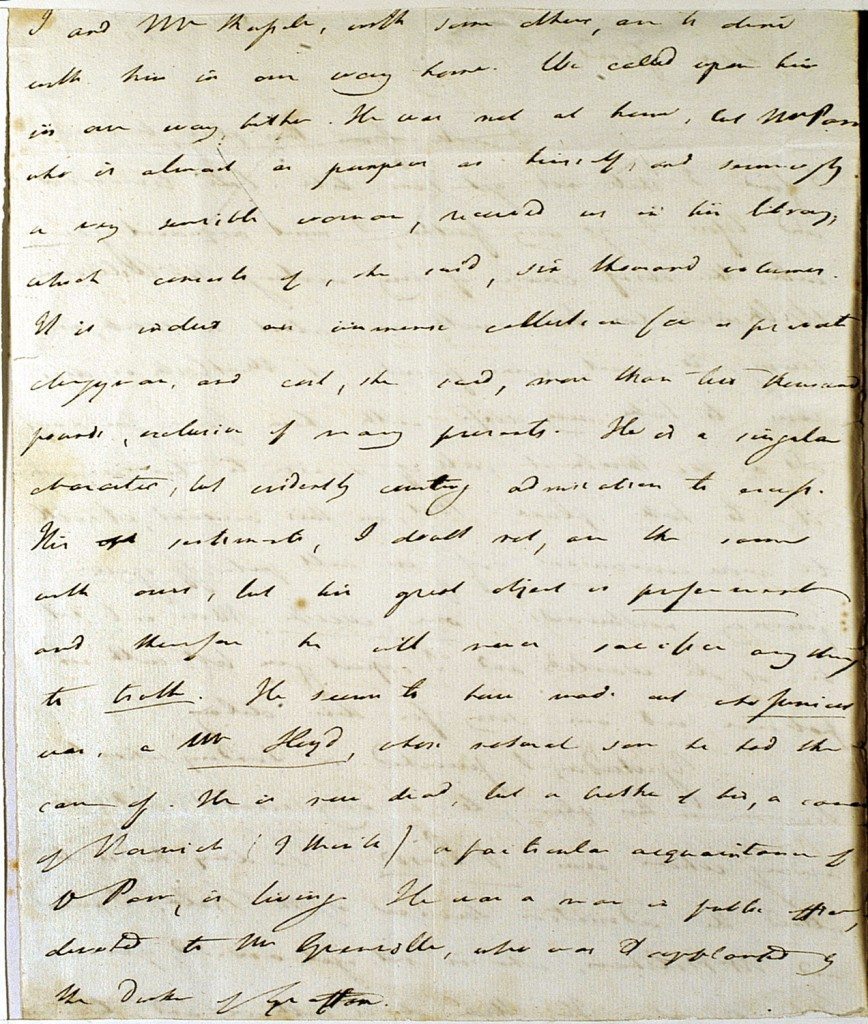 I and Mr , with some others, are to dine
with him in our way home. We called upon him
in our way hither. He was not at home, but Mrs Parr
who is almost as pompous as himself, and seemingly
a very sensible woman, received us in his library,
which consists of, she said, six thousand volumes.
It is indeed an immense collection for a private
clergyman, and cost, she said, more than two thousand
pounds, exclusive of many presents. He is a singular
character, but evidently courting admiration to excess.
His sentiments, I doubt not, are the same
with ours, but his great object is preferment
and therefore he will never sacrifice any thing
to truth. He seems to have made out who Junius
was, a Mr Lloyd, whose natural son he had the
care of. He is now dead, but a brother of his, a canon
of Norwich (I think) a particular acquaintance of
Dr Parr, is living. He was a man in public office,
devoted to Mr Grenville, who was supplanted by
the Duke of Grafton.